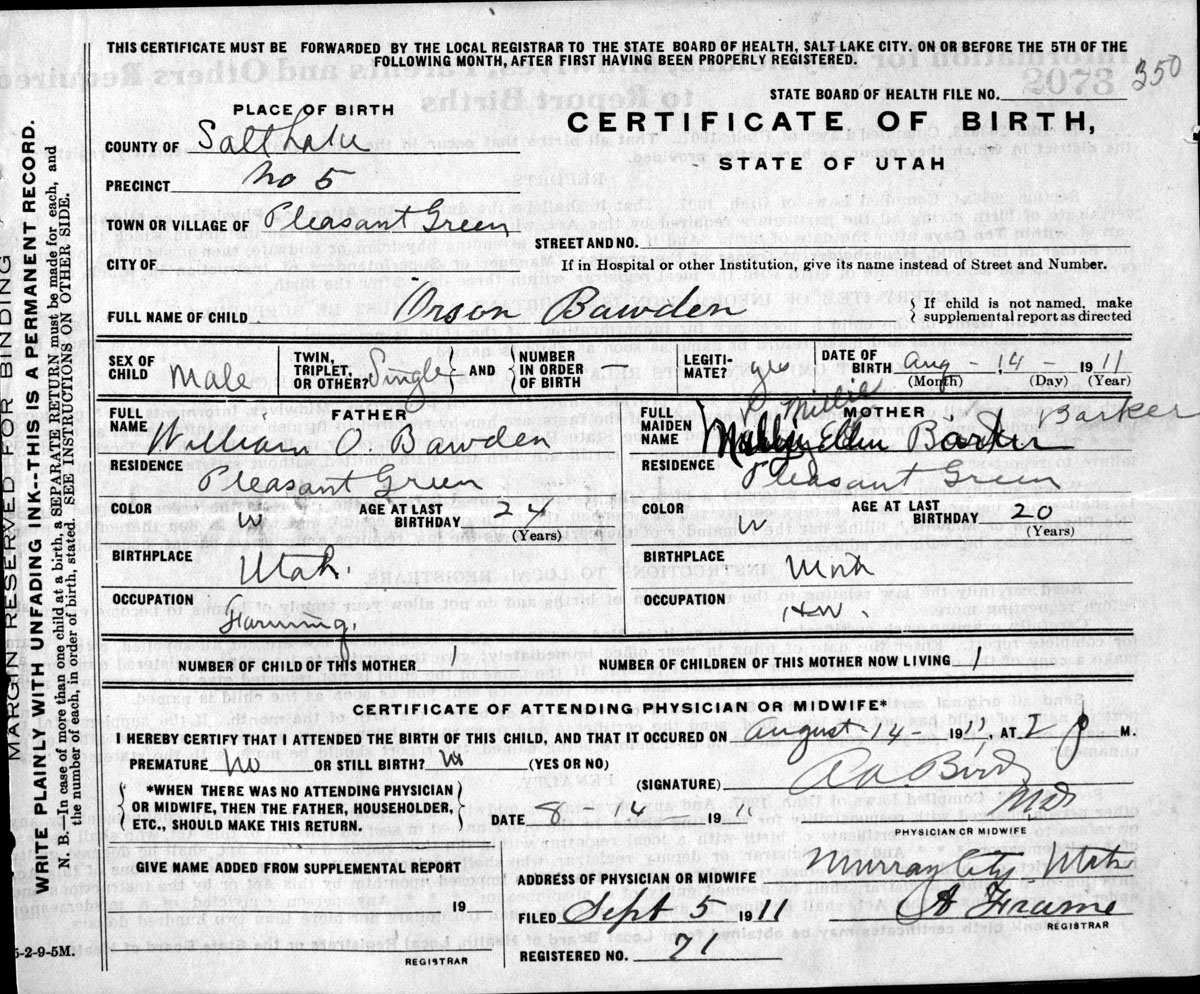 THIS CERTIFICATE MUST BE FORWARDED BY THE LOCAL REGISTRAR TO THE STATE BOARD OF HEALTH, SALT LAKE CITY, ON OR BEFORE THE 5TH OF THE
FOLLOWING MONTH, AFTER FIRST HAVING BEEN PROPERLY REGISTERED.
350
2073
STATE BOARD OF HEALTH FILE NO.
PLACE OF BIRTH
CERTIFICATE OF BIRTH,
STATE OF UTAH
COUNTY OF Salt Lake
PRECINCT No 5
TOWN OR VILLAGE OF Pleasant Green
STREET AND NO.
CITY OF
If in Hospital or other Institution, give its name instead of Street and Number.
FULL NAME OF CHILD Orson Bawden
If child is not named, make
supplemental report as directed
SEX OF CHILD Male
TWIN, TRIPLET, OR OTHER? Single
AND
NUMBER IN ORDER OF BIRTH
LEGITIMATE? yes
DATE OF BIRTH Aug - 14 - 1911
(Month) (Day) (Year)
FATHER
FULL NAME William O. Bawden
RESIDENCE Pleasant Green
COLOR W
AGE AT LAST BIRTHDAY 24
(Years)
BIRTHPLACE Utah.
OCCUPATION Farming.
MOTHER
Millie Barker
FULL MAIDEN NAME Ellen Barker
RESIDENCE Pleasant Green
COLOR W
AGE AT LAST BIRTHDAY 20
(Years)
BIRTHPLACE Utah
OCCUPATION HW.
NUMBER OF CHILD OF THIS MOTHER 1
NUMBER OF CHILDREN OF THIS MOTHER NOW LIVING 1
CERTIFICATE OF ATTENDING PHYSICIAN OR MIDWIFE*
I HEREBY CERTIFY THAT I ATTENDED THE BIRTH OF THIS CHILD, AND THAT IT OCCURED ON August-14- 1911, AT P M.
PREMATURE No OR STILL BIRTH? No (YES OR NO)
*WHEN THERE WAS NO ATTENDING PHYSICIAN
OR MIDWIFE, THEN THE FATHER, HOUSEHOLDER,
ETC., SHOULD MAKE THIS RETURN.
(SIGNATURE) Bird,
MD
PHYSICIAN OR MIDWIFE
DATE 8 14 1911
GIVE NAME ADDED FROM SUPPLEMENTAL REPORT
19
REGISTRAR
ADDRESS OF PHYSICIAN OR MIDWIFE Murray City Utah
FILED Sept 5 1911
A Frame
REGISTRAR
REGISTERED NO. 71
MARGIN RESERVED FOR BINDING
WRITE PLAINLY WITH UNFADING INK--THIS IS A PERMANENT RECORD.
N. B.—In case of more than one child at a birth, a SEPARATE RETURN must be made for each, and
the number of each, in order of birth, stated. SEE INSTRUCTIONS ON OTHER SIDE.
5-2-9-5M.